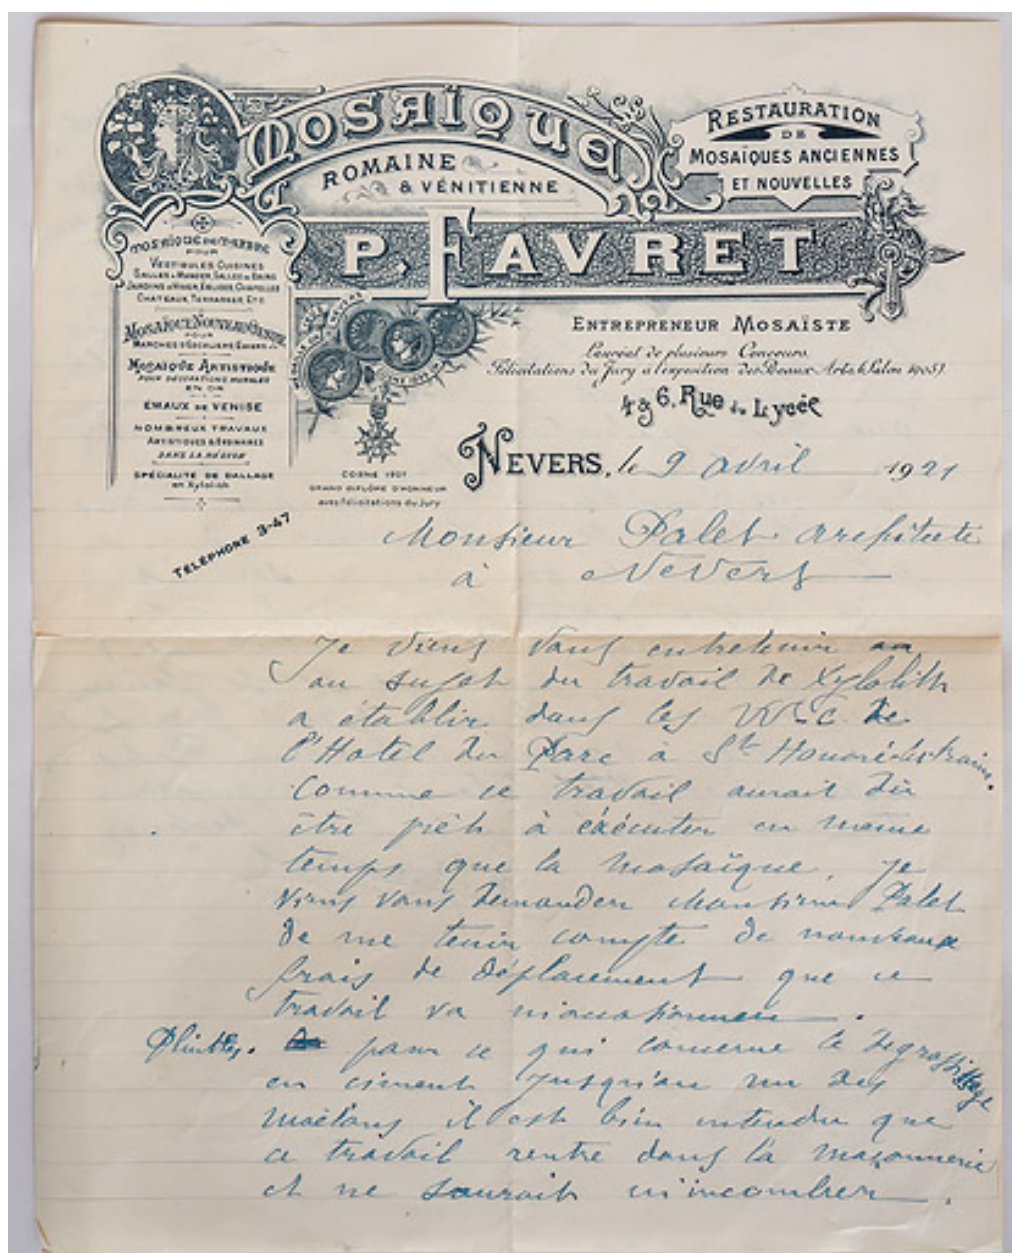 MOSAÏQUE
ROMAINE
& VÉNITIENNE
RESTAURATION
DE
MOSAÏQUES ANCIENNES
ET NOUVELLES
P. FAVRET
MOSAÏQUE DE MARBRE
POUR
VESTIBULES, CUISINES
SALLES À MANGER, SALLES DE BAINS
JARDINS D'HIVER, EGLISES, CHAPELLES
CHATEAUX, TERRASSES, ETC
MOSAÏQUE NOUVEAU GENRE
POUR
MARCHES D'ESCALIERS
MOSAÏQUE ARTISTIQUE
POUR DÉCORATIONS MURALES
EN OR
EMAUX DE VENISE
NOMBREUX TRAVAUX
ARTISTIQUES & ORDINAIRES
DANS LA RÉGION
SPÉCIALITÉ DE DALLAGE
en Xylolith
COSNE 1907
GRAND DIPLÔME D'HONNEUR
avec félicitations du Jury
ENTREPRENEUR MOSAÏSTE
Lauréat de plusieurs Concours
Félicitations du Jury à l'exposition des Beaux-Arts (Salon 1905)
4 & 6, Rue du Lycée
NEVERS, le 9 avril 1921
TÉLÉPHONE 3-47
Monsieur Palet architecte
à Nevers
Je viens vous entretenir
au sujet du travail de Xylolith
a établir dans les W.C. de
l'Hotel du Parc à St Honoré-les-bains.
Comme ce travail aurait dû
être prêt à éxécuter en même
temps que la mosaïque, je
viens vous demander Monsieur Palet
de me tenir compte de nouveaux
frais de déplacement que ce
travail va m'occasionner.
Plinthes. pour ce qui concerne le dégrossissage
en ciment jusqu'au nu des
moëlons il est bien entendu que
ce travail rentre dans la maçonnerie
et ne saurait m'incomber.